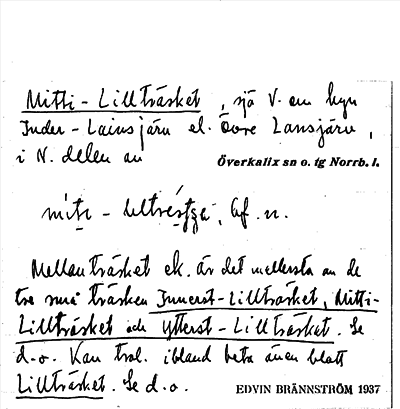 Mitti-Lillträsket, sjö V. om byn
Inder-Lainsjärv el. Övre Lansjärv,
i N. delen av Överkalix sn o. tg Norrb. l.
best. f. n.
Mellanträsket ek. är det mellersta av de
tre små träsken Innerst-Lillträsket, Mitti-
Lillträsket och Ytterst-Lillträsket. Se
d.o. Kan trol. ibland heta även blott
Lillträsket. Se d.o.
EDVIN BRÄNNSTRÖM 1937